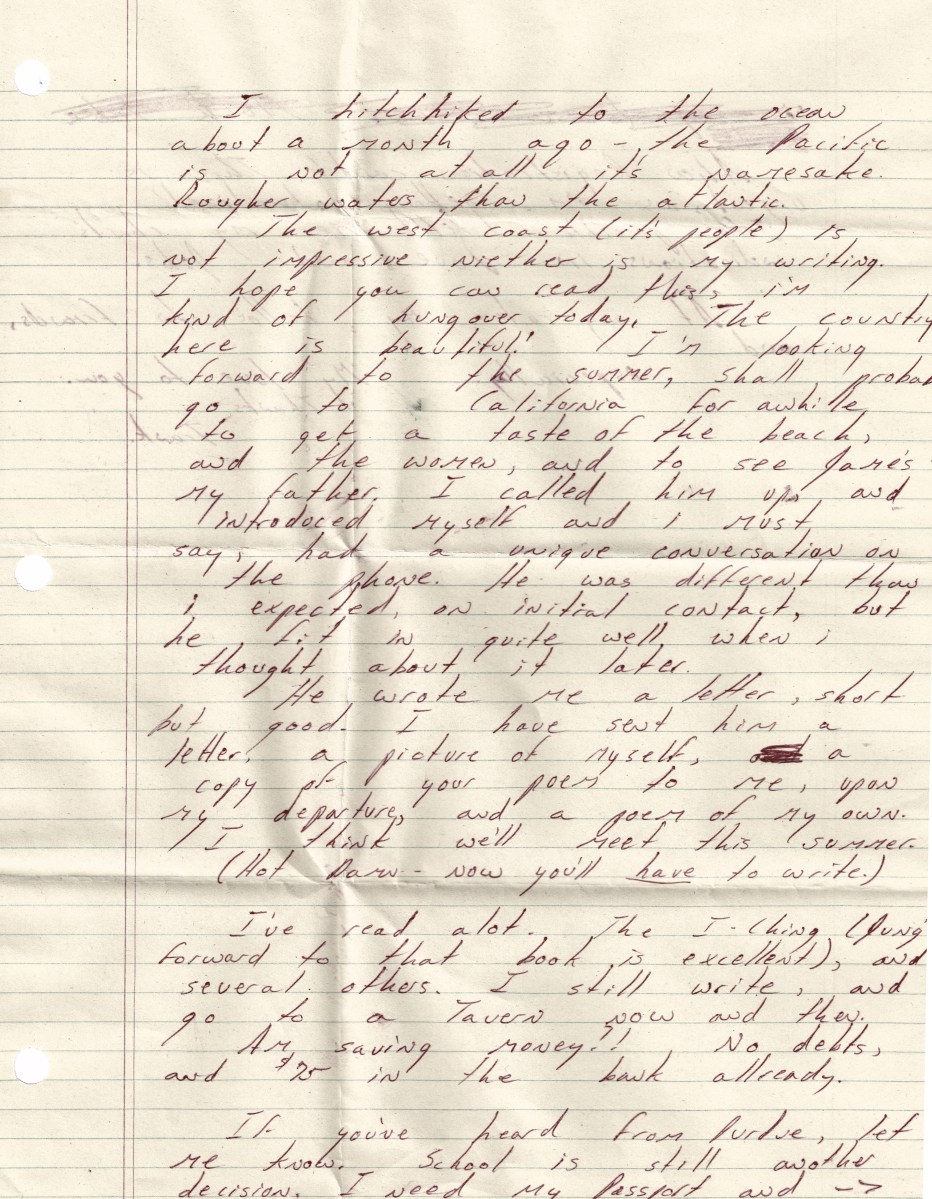 I hitchhiked to the ocean
about a month ago - the Pacific
is not at all it's namesake.
Rougher waters than the atlantic.
The west coast (it's people) is
not impressive niether is my writing.
I hope you can read this, i'm
kind of hungover today. The country
here is beautiful! I'm looking
forward to the summer, shall probab
go to California for awhile
to get a taste of the beach,
and the women, and to see Jame's -
my father. I called him up, and
introduced myself and i must
say, had a unique conversation on
the phone. He was different than
i expected, on initial contact, but
he fit in quite well when i
thought about it later.
He wrote me a letter, short
but good. I have sent him a
letter, a picture of myself, a
copy of your poem to me, upon
my departure, and a poem of my own.
I think we'll meet this summer.
(Hot Damn - now you'll have to write.)
I've read alot. The I-Ching (Jung'
forward to that book is excellent), and
several others. I still write, and
go to a Tavern now and then.
Am saving money!! No debts,
and $25 in the bank allready.
If you've heard from Purdue, let
me know. School is still another
decision. I need my Passport and ->